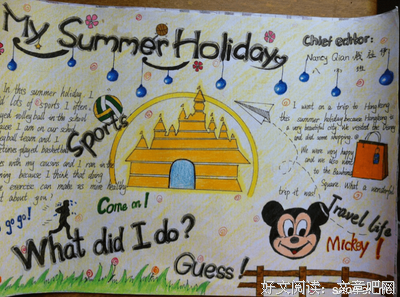 My Summer Holiday
Chief editor:
Nancy Qian
In this summer holiday, I
did lots of sports. I often
played volleyball in the school
because I am on our school
volleyball team and I
sometimes played basketball
with my cousin and I ran in the
because I think that doing
exercise can make us more healthy
about you!
go go!
Sports
Come on!
What did I do?
Guess!
I went on a trip to Hongkong
this summer holiday because Hongkong is
a very beautiful city. We visited the Disney
and did some shopping
We were very
and we also
to the Bauhinia
Square. What a wonderful
trip it was!
Travel life
Mickey!
好文阅读:
文章吧网